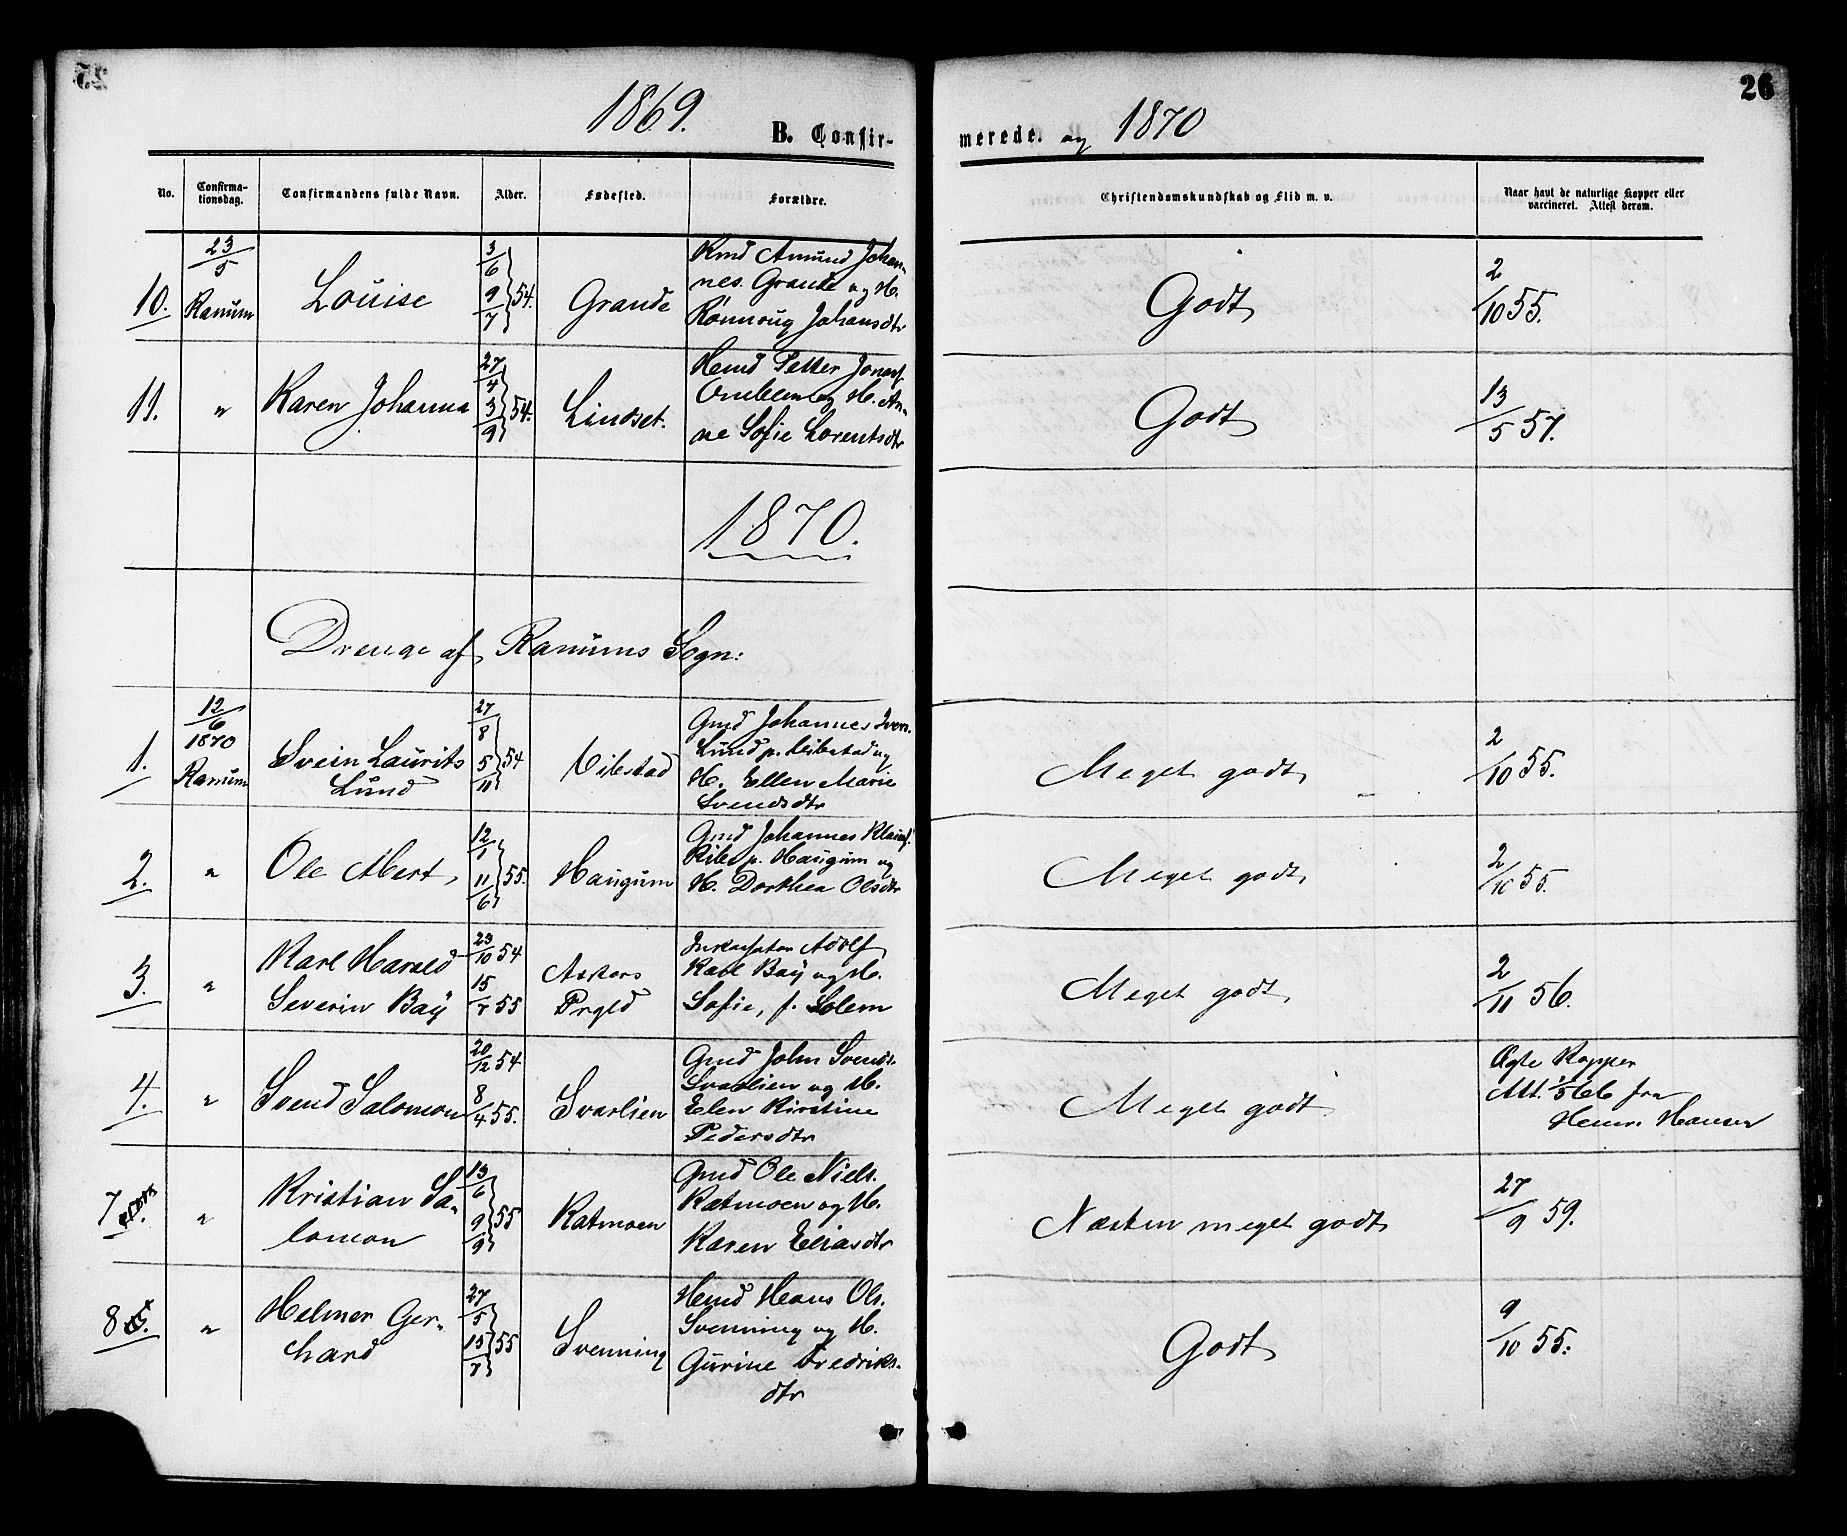 26
1869.
B. Confir-
merede. og 1870
No.
Confirma-
tionsdag.
Confirmandens fulde Navn.
Alder.
Fødested.
Forældre.
Christendomskundskab og Flid m. v.
Naar havt de naturlige Kopper eller
vaccineret. Attest derom.
23/5
Ranum
10.
Louise
3/6 9/7 54.
Grande
Amund Johan-
nes. Grande og H.
Rønnoug Johansdtr
Godt
2/10 55.
11. "
Karen Johanna
27/4 3/9 54.
Lindset.
Hmd Petter
og H. An-
ne Sofie Lorentsdtr
Godt
13/5 57.
1870.
Drenge af Ranums Sogn:
12/6
1870
Ranum
1.
Svein Laurits
Lund
27/8 5/11 54
Vibstad
Gmd Johannes Iver.
Lund p. Vibstad og
H. Ellen Marie
Svendsdtr
Meget godt
2/10 55.
2. "
Ole Albert
12/1 11/6 55.
Haugum
Gmd Johannes
p. Haugum og
H. Dorthea Olsdtr
Meget godt
2/10 55.
3. "
Karl Harald
Severin Baÿ
23/10 54
15/7 55
Askers
Prgld
Adolf
Karl Baÿ og H.
Sofie, f. Solem
Meget godt
2/11 56.
4. "
Svend Salomon
20/12 54
8/4 55.
Svarlien
Gmd John Svends.
Svarlien og H.
Elen Kirstine
Pedersdtr
Meget godt
Ægte Kopper
Att. 1/5 66 fra
Henr. Hansen
7 "
Kristian Sa-
lomon
13/6 9/9 55
Ratmoen
Gmd Ole Niels.
Ratmoen og H.
Karen Eliasdtr
Næsten meget godt
27/9 59.
8 "
Helmer Ger-
hard
27/5 15/7 55
Svenning
Hmd Hans Ols.
Svenning og H.
Gurine Fredriks-
dtr
Godt
9/10 55.